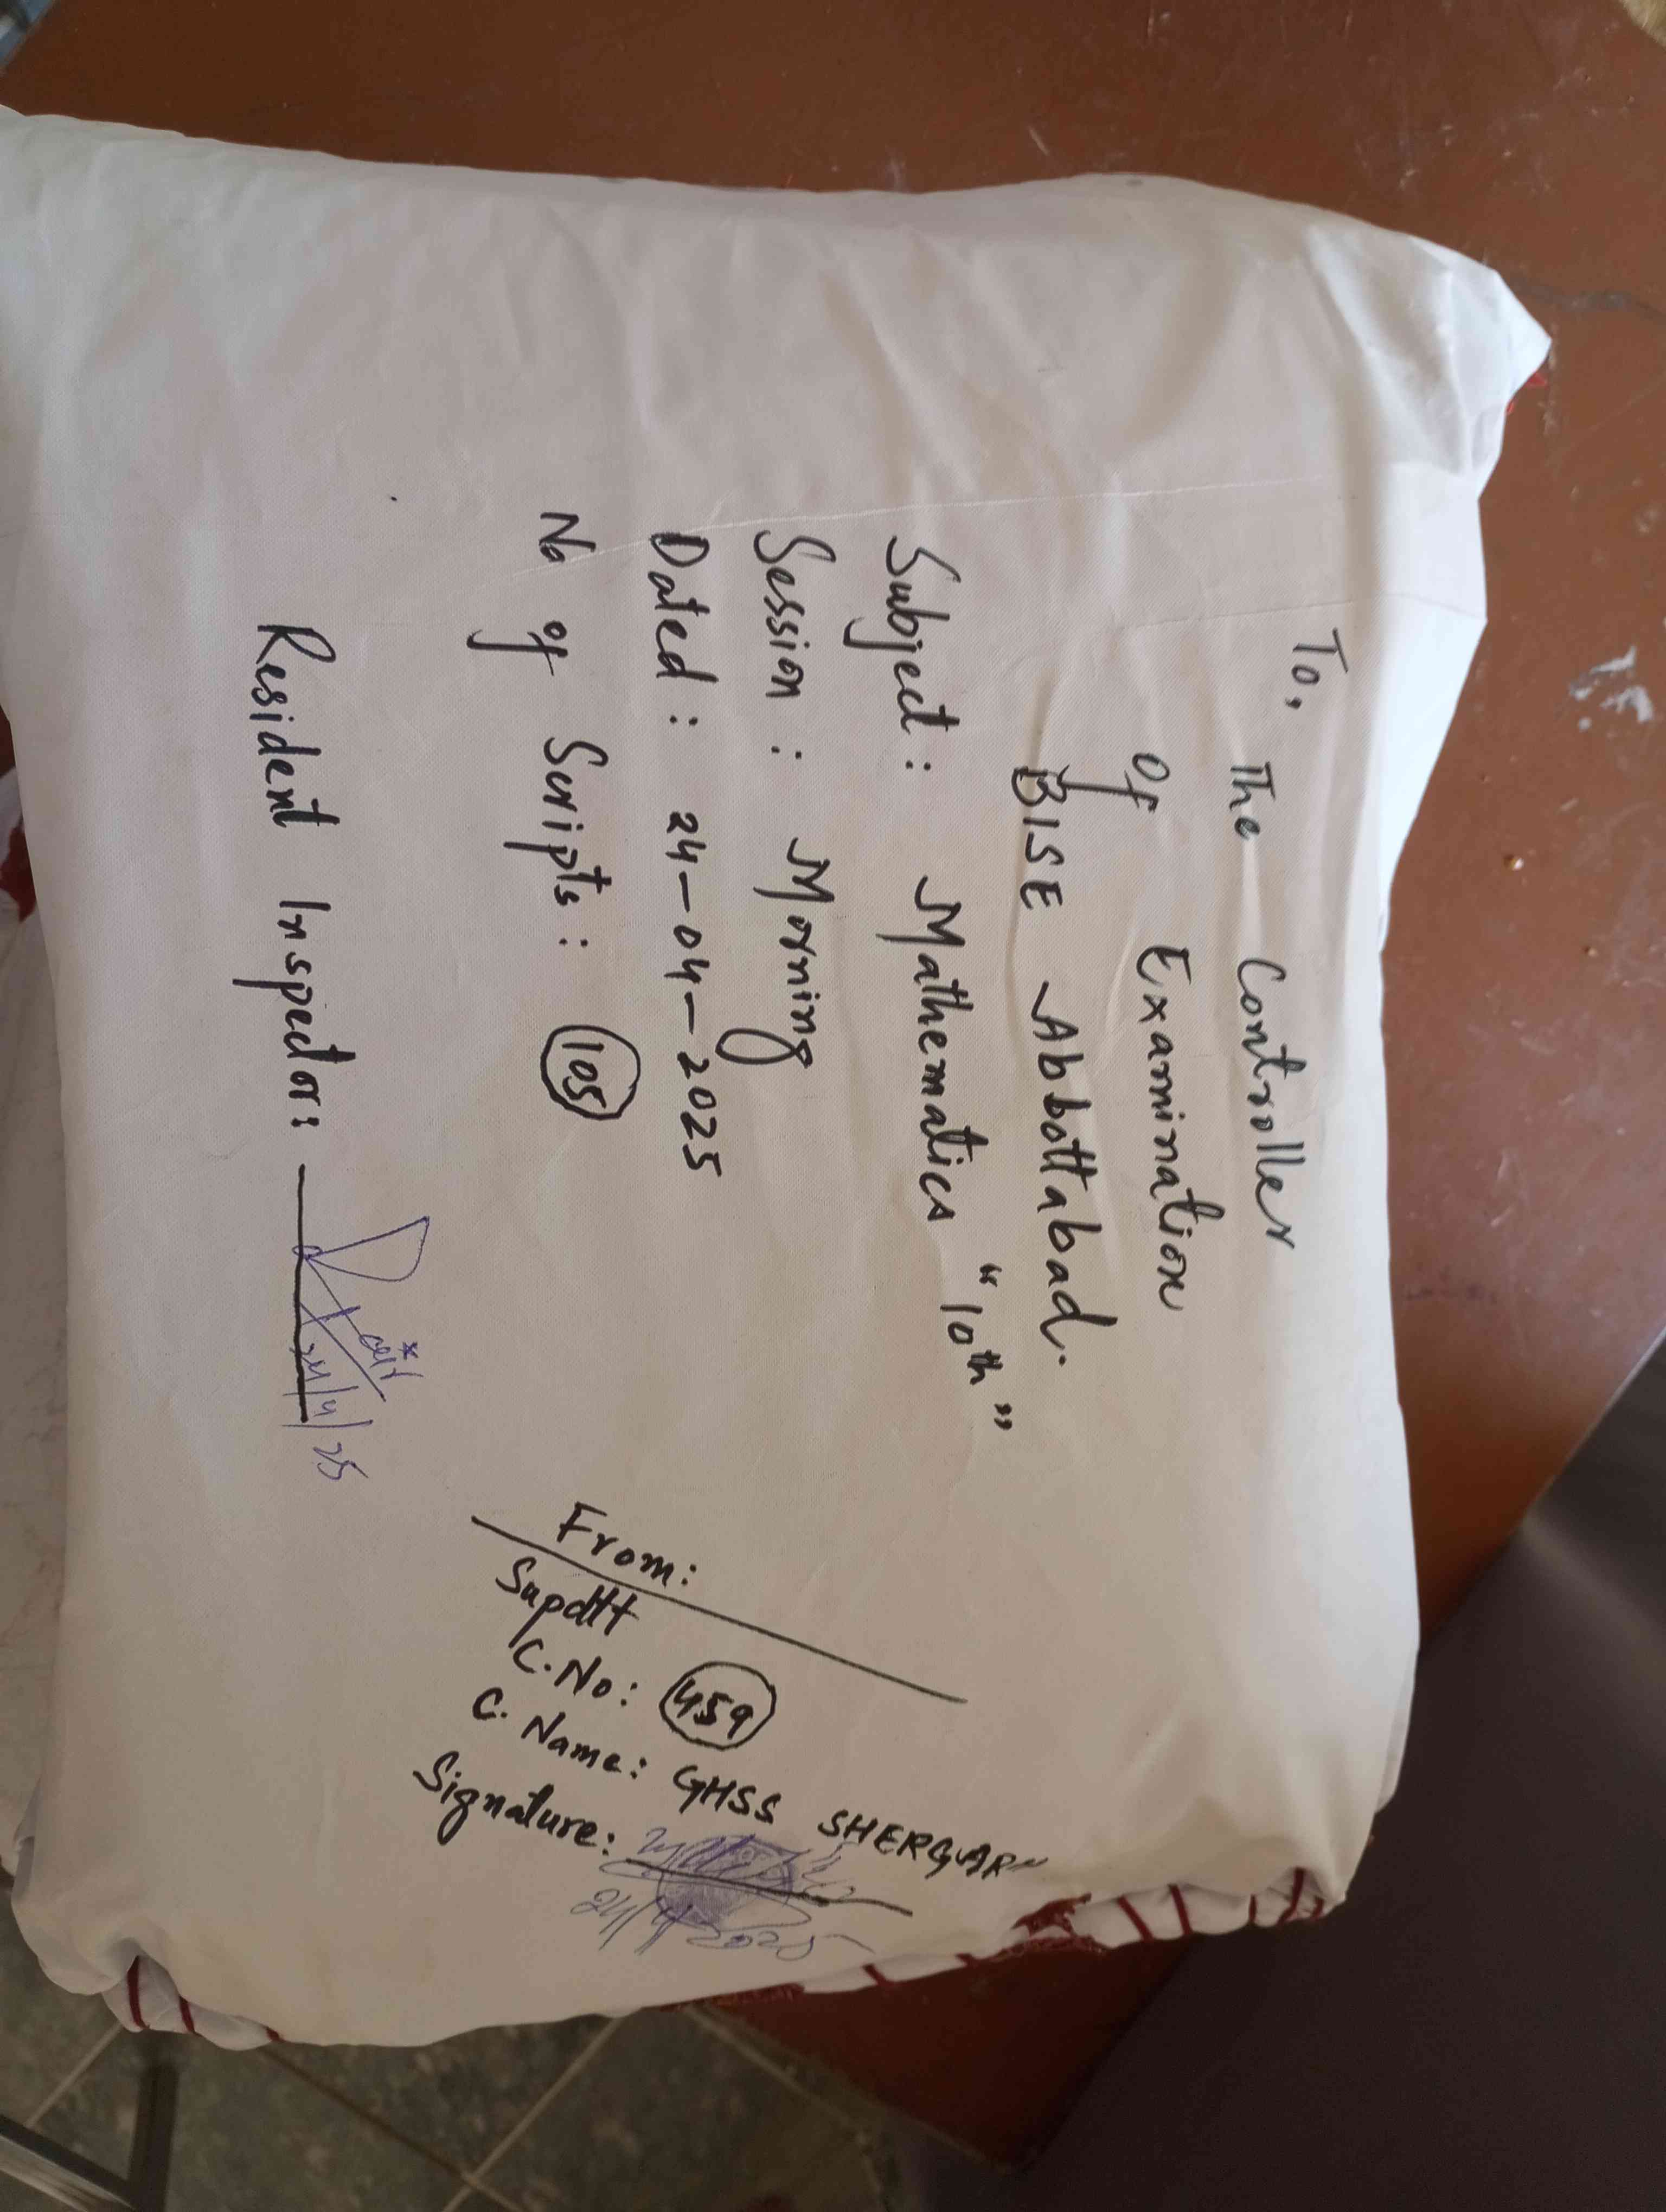 To,
The Controller
Of Examination
BISE Abbottabad.
Subject: Mathematics "10th"
Session: Morning
Dated: 24-04-2025
No of Scripts: 105
Resident Inspector:
24/4/25
From:
Supdtt
C.No: 459
C. Name: GHSS SHERGARH
Signature: